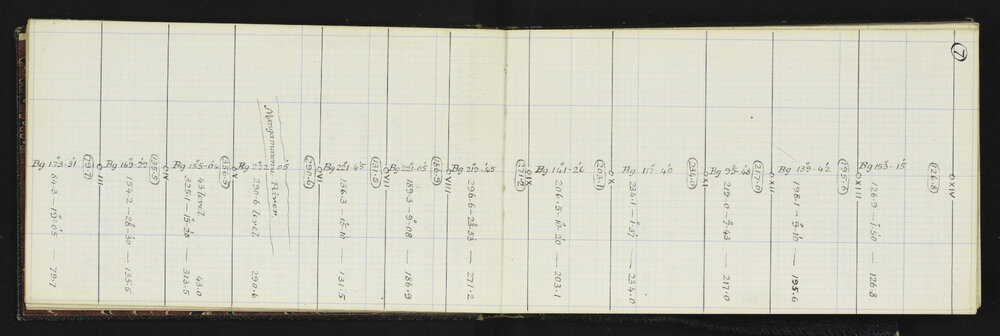 7
Bg 173°-31'
84.3 — 19°-05' — 79.7
79.7
O III
Bg 169°-22'
154.2 — 28°-30' — 135.5
135.5
O IV
Bg 155°-04'
43 level 43.0
325.1 — 15°-20' — 313.5
356.5
O V
Bg 222°-05'
290.6 level 290.6
River
290.6
O VI
Bg 221°-45'
136.3 — 15°-10' — 131.5
131.5
O VII
Bg 221°-05'
189.3 — 9°-08' — 186.9
186.9
O VIII
Bg 219°-45'
296.6 — 23°-53' — 271.2
271.2
O IX
Bg 141°-26'
206.5 — 10°-20' — 203.1
203.1
O X
Bg 117°-40'
234.1 — 1°-37' — 234.0
234.0
O XI
Bg 95°-48'
219.0 — 7°-43' — 217.0
217.0
O XII
Bg 139°-42'
198.1 — 9°-10' — 195.6
195.6
O XIII
Bg 155°-15'
126.9 — 1°-50' — 126.8
126.8
O XIV